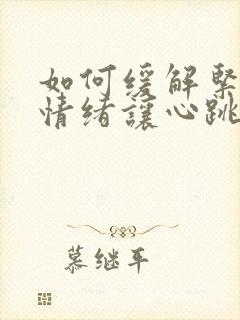 如何缓解緊
情绪讓心跳
慕继平